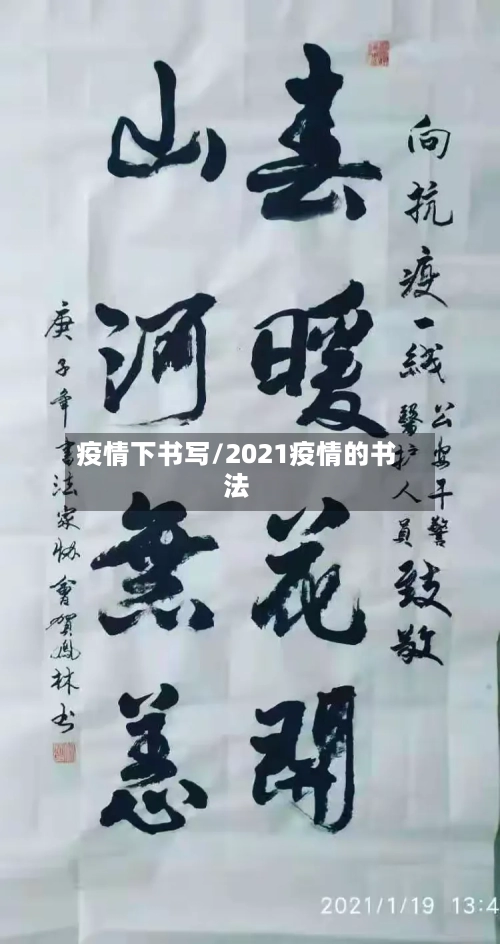 向抗疫一线
公安干警
醫护人員
致敬
春暖花開
山河無恙
庚子年書法家协會賀鳳林书
疫情下书写/2021疫情的书
法
2021/1/19 13:4